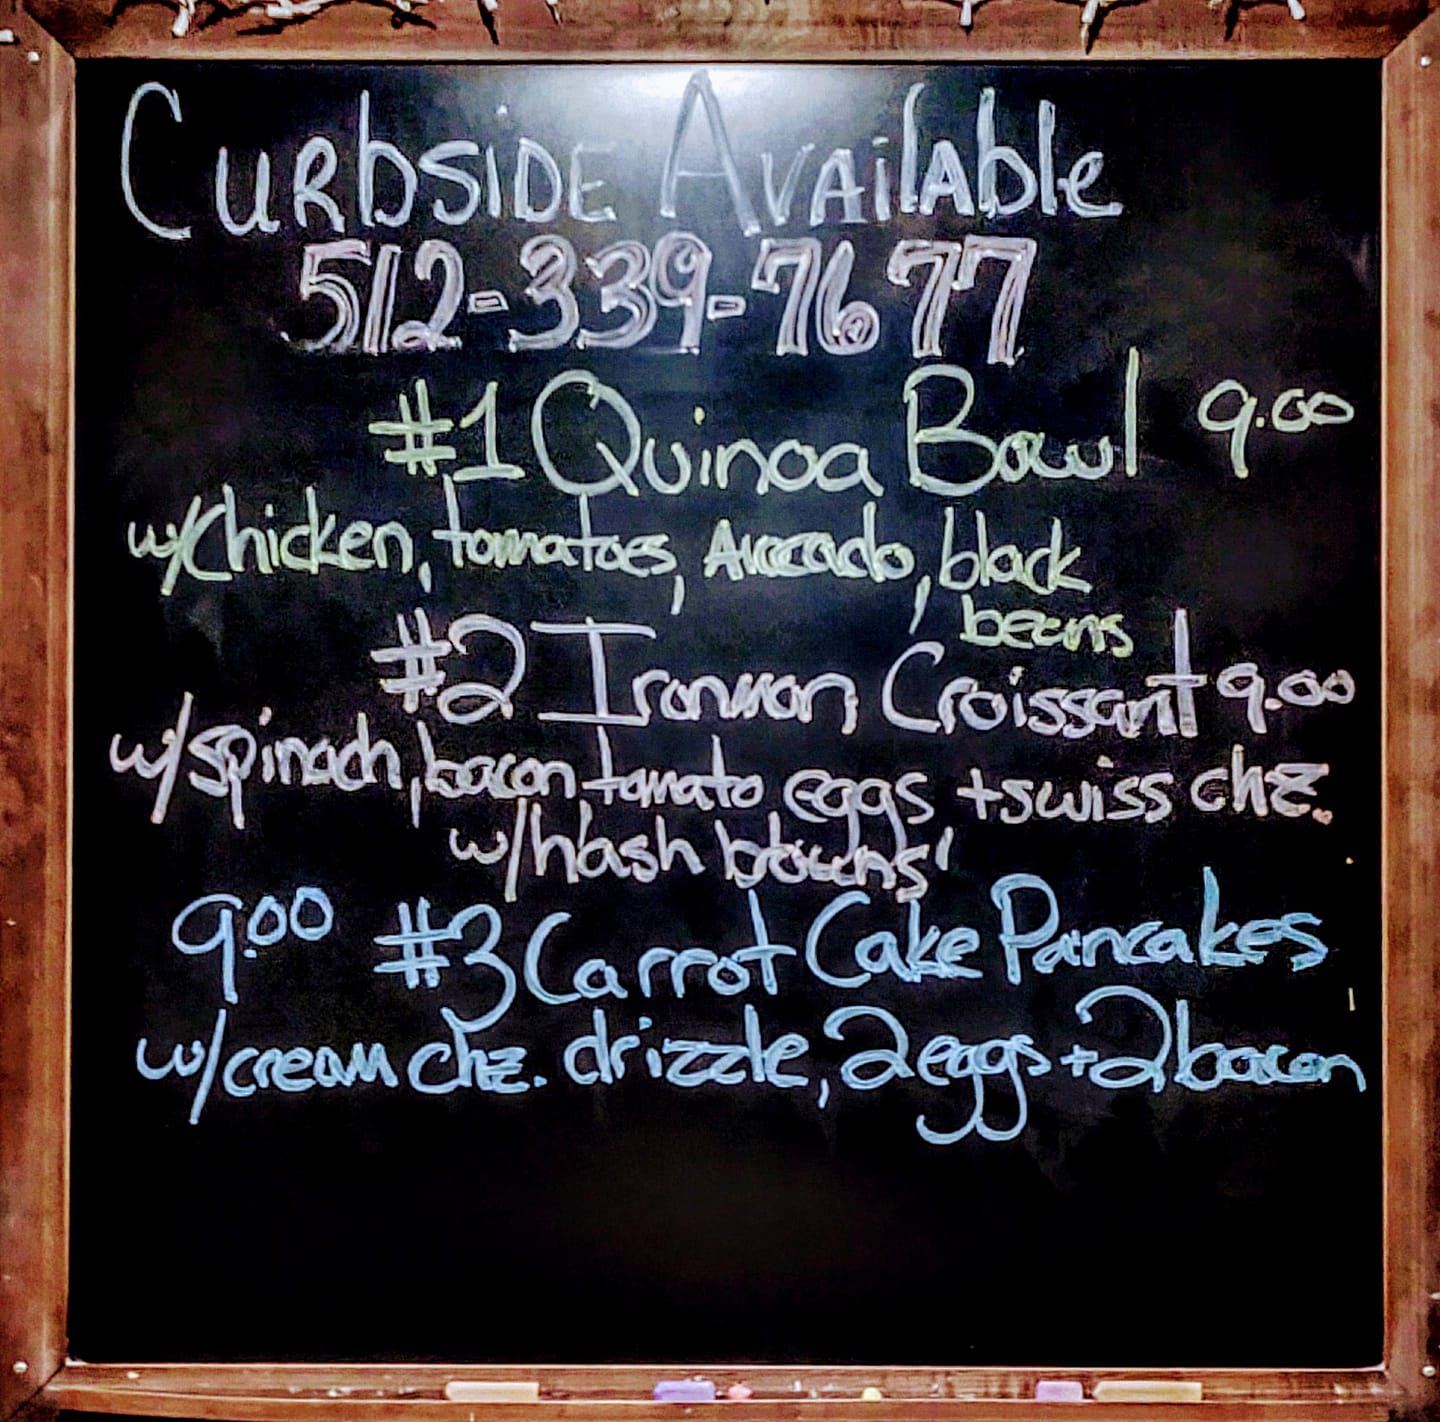 Curbside Available
512-339-7677
#1 Quinoa Bowl 9.00
w/Chicken, tomatoes, Avocado, black
beans
#2 Ironman Croissant 9.00
w/spinach, bacon, tomato eggs + swiss chz.
w/hash browns
9.00 #3 Carrot Cake Pancakes
w/cream chz. drizzle, 2 eggs + 2 bacon